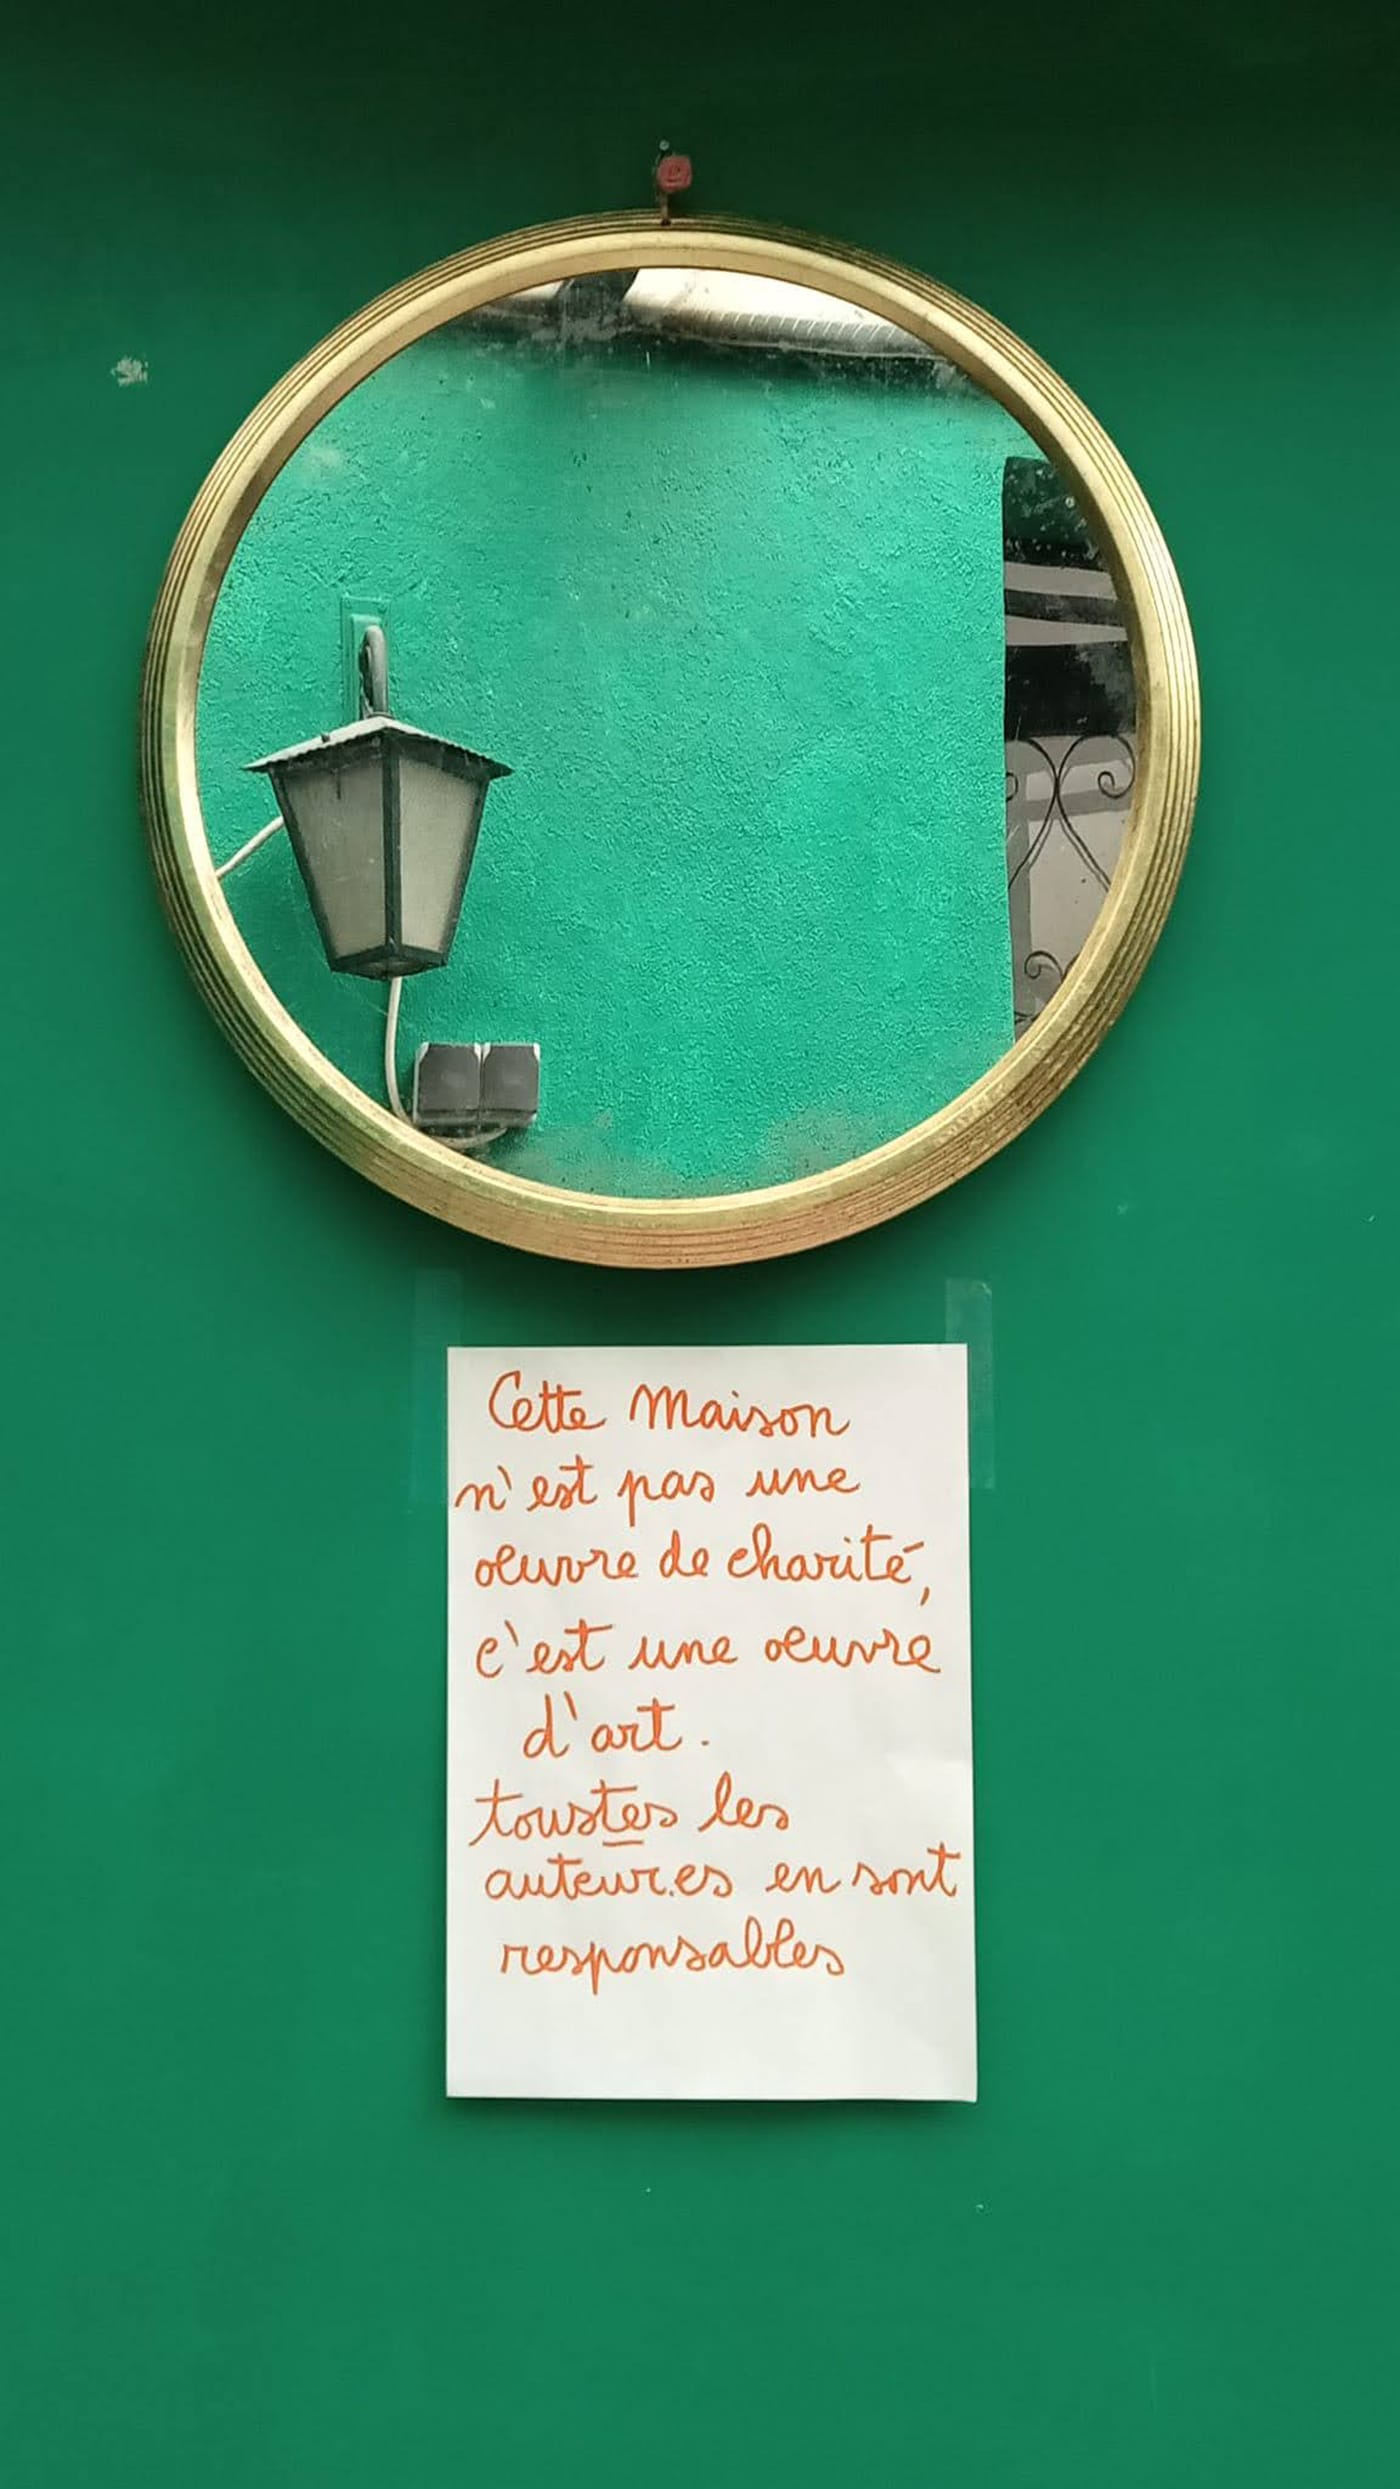 Cette Maison
n'est pas une
oeuvre de charité,
c'est une oeuvre
d'art.
toustes les
auteur.es en sont
responsables